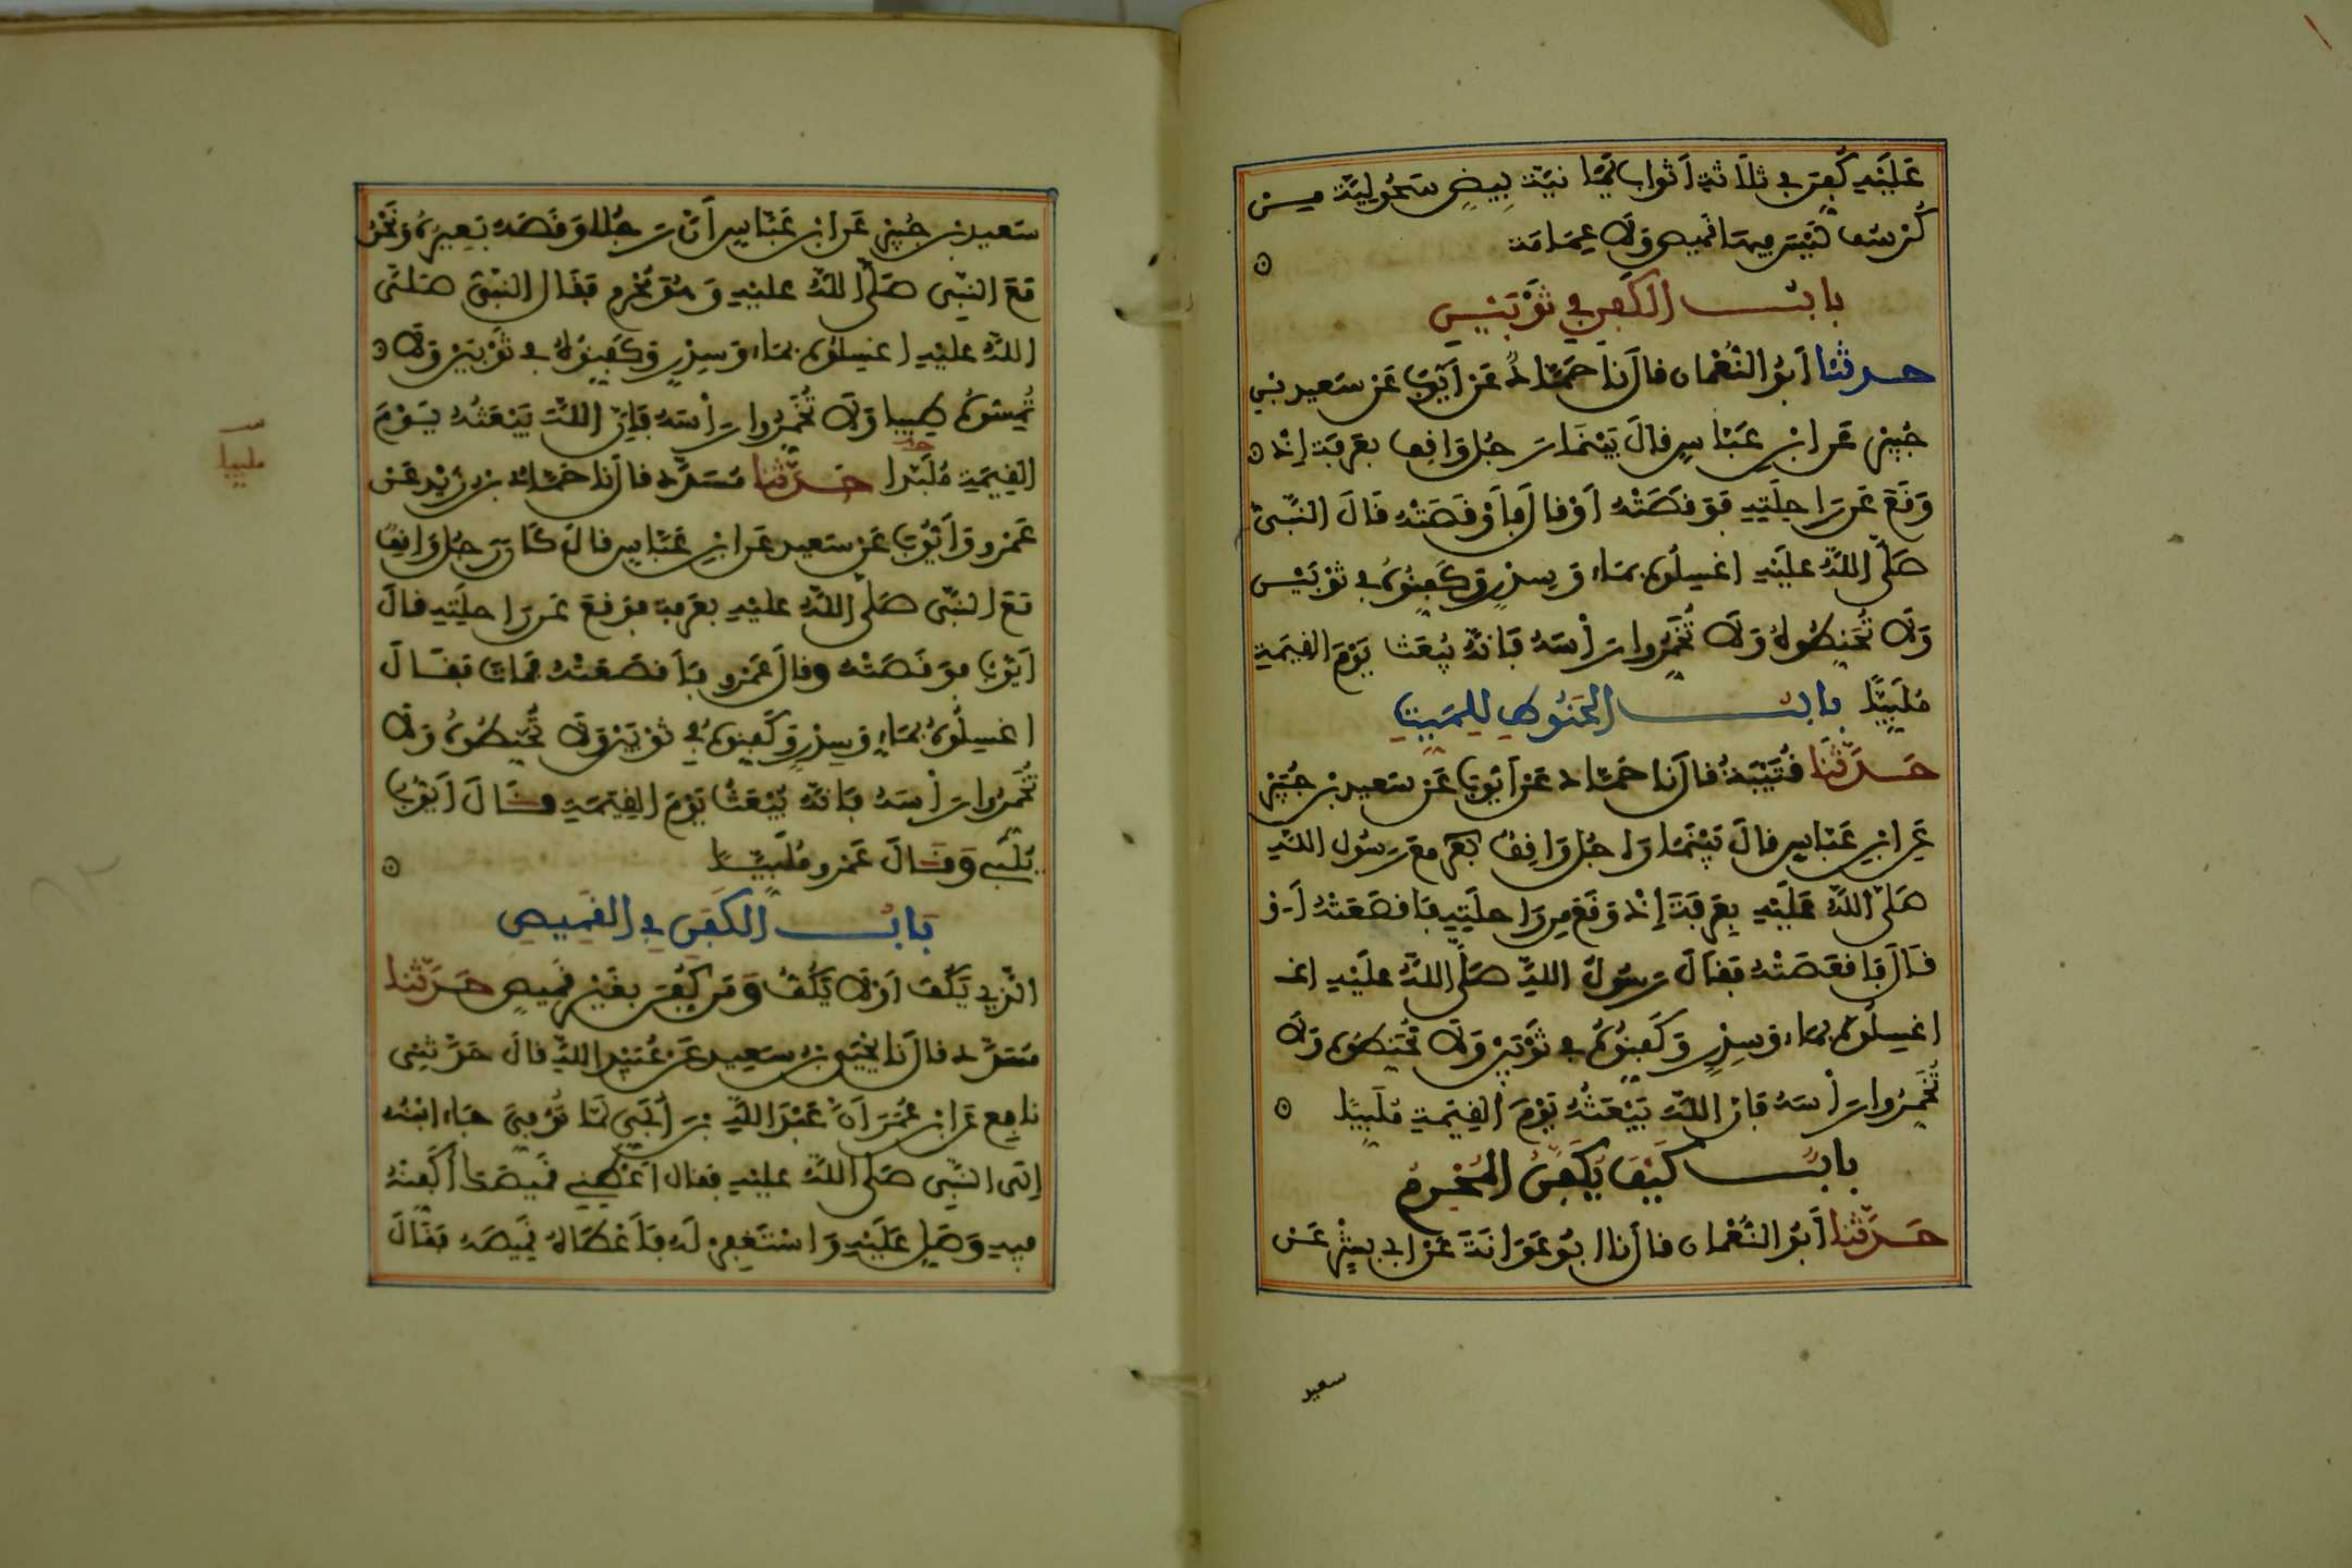 عَلَيْهِ كُفِّنَ في ثَلَاثَةِ أَثْوَابٍ يَمَانِيَةٍ بِيضٍ سَحُولِيَّةٍ مِن
كُرْسُفٍ لَيْسَ فيهَا قَمِيصٌ وَلَا عِمَامَة
بابُ الكَفَنِ في ثَوْبَيْنِ
حدثنا أبُو النُّعْمان قالَ نا حَمَّادٌ عَنْ أَيُّوبَ عَنْ سَعيدِ بْنِ
جُبَيْرٍ عَنِ ابْنِ عَبَّاسٍ قالَ بَيْنَمَا رَجُلٌ وَاقِفٌ بعَرَفَةَ إِذْ
وَقَعَ عَن رَاحِلَتِهِ فَوَقَصَتْهُ أَوْ قالَ فَأَوْقَصَتْهُ قَالَ النَّبيُّ
صَلَّى اللهُ عليْهِ اغْسِلُوهُ بمَاءٍ وَسِدْرٍ وَكَفِّنُوهُ في ثَوْبَيْنِ
وَلَا تُحَنِّطُوهُ وَلَا تُخَمِّرُوا رَأْسَهُ فَإنَّهُ يُبْعَثُ يَوْمَ القِيَمَةِ
مُلَبِّيًا بابُ الحَنُوطِ لِلمَيِّتِ
حَدَّثَنَا قُتَيْبَةُ قالَ نا حَمَّاد عَنْ أَيُّوبَ عَنْ سَعيدِ بْنِ جُبَيْرٍ
عَنِ ابْنِ عَبَّاسٍ قالَ بَيْنَمَا رَجُلٌ وَاقِفٌ مَعَ رَسُولِ اللهِ
صَلَّى اللهُ عَلَيْهِ بِعَرَفَةَ إِذْ وَقَعَ مِن رَاحِلَتِهِ فَأَقْصَعَتْهُ أَوْ
قَالَ فَأَقْعَصَتْهُ فَقَالَ رَسُولُ اللهِ صَلَّى اللهُ عَلَيْهِ اغـ
اغسِلُوهُ بمَاءٍ وَسِدْرٍ وَكَفِّنُوهُ في ثَوْبَيْنِ وَلَا تُحَنِّطُوهُ وَلَا
تُخَمِّرُوا رَأْسَهُ فَإنَّ اللهَ يَبْعَثُهُ يَوْمَ القِيَمَةِ مُلَبِّيًا
بابٌ كَيْفَ يُكَفَّنُ المُحْرِمُ
حَدَّثَنا أَبُو النُّعْمان قالَ نا أبُو عَوَانَةَ عَنْ أبي بِشْرٍ عَن
سعيد
سَعيدِ بْنِ جُبَيْرٍ عَنِ ابْنِ عَبَّاسٍ أَنَّ رَجُلًا وَقَصَهُ بَعِيرُهُ وَنَحْنُ
مَعَ النَّبِيِّ صَلَّى اللهُ عليْهِ وَهُوَ مُحْرِمٌ فَقَالَ النَّبيُّ صَلَّى
اللهُ عليْهِ اغسِلُوهُ بمَاءٍ وَسِدْرٍ وَكَفِّنُوهُ في ثَوْبَيْنِ وَلَا
تُمِسُّوهُ طِيبا وَلَا تُخَمِّرُوا رَأْسَهُ فَإنَّ اللهَ يَبْعَثُهُ يَوْمَ
القِيَمَةِ مُلَبِّدًا حَدَّثَنا مُسَدَّد قالَ نا حَمَّادُ بْنُ زَيْدٍ عَنْ
ملبيا
عَمْرٍو وَأَيُّوبَ عَنْ سَعيدٍ عَنِ ابْنِ عَبَّاسٍ قالَ كَانَ رَجُلٌ وَاقِفٌ
مَعَ النَّبِيِّ صَلَّى اللهُ عليْهِ بعَرَفَةَ فَوَقَعَ عَن رَاحِلَتِهِ قالَ
أَيُّوبُ فَوَقَصَتْهُ وقالَ عَمْرٌو فَأَقْصَعَتْهُ فَمَاتَ فَقَالَ
اغسِلُوهُ بمَاءٍ وَسِدْرٍ وَكَفِّنُوهُ في ثَوْبَيْنِ وَلَا تُحَنِّطُوهُ وَلَا
تُخَمِّرُوا رَأْسَهُ فَإنَّهُ يُبْعَثُ يَوْمَ القِيَمَةِ قَالَ أَيُّوبُ
يُلَبِّي وَقَالَ عَمْرو مُلَبِّيًا
بَابُ الكَفَنِ في القَمِيصِ
الَّذي يُكَفُّ أَوْ لَا يُكَفُّ وَمَن كُفِّنَ بغَيْرِ قَمِيصٍ حَدَّثَنا
مُسَدَّد قالَ نا يَحْيَى بْنُ سَعيدٍ عَنْ عُبَيْدِ اللهِ قالَ حَدَّثَنِي
نافِع عَنِ ابْنِ عُمَرَ أَنَّ عَبْدَ اللهِ بْنَ أُبَيٍّ لَمَّا تُوُفِّيَ جَاءَ ابْنُهُ
إِلَى النَّبِيِّ صَلَّى اللهُ عليْهِ فَقَالَ أَعْطِنِي قَمِيصَكَ أُكَفِّنْهُ
فِيهِ وَصَلِّ عَلَيْهِ وَاسْتَغْفِرْ لَهُ فَأَعْطَاهُ قَمِيصَهُ فَقَالَ